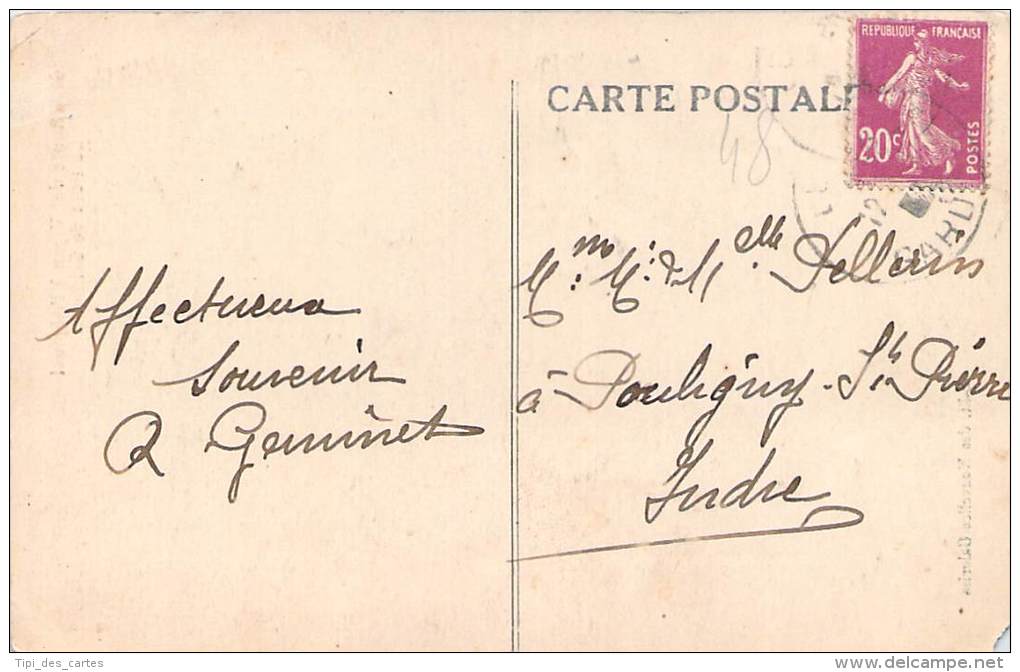 CARTE POSTALE
REPUBLIQUE FRANÇAISE
20c
POSTES
48
Affectueux
Souvenir
Geminet
Mme Mr & Melle Pellerin
à Pouligny-St Pierre
Indre
Tipi_des_cartes
www.delcampe.net